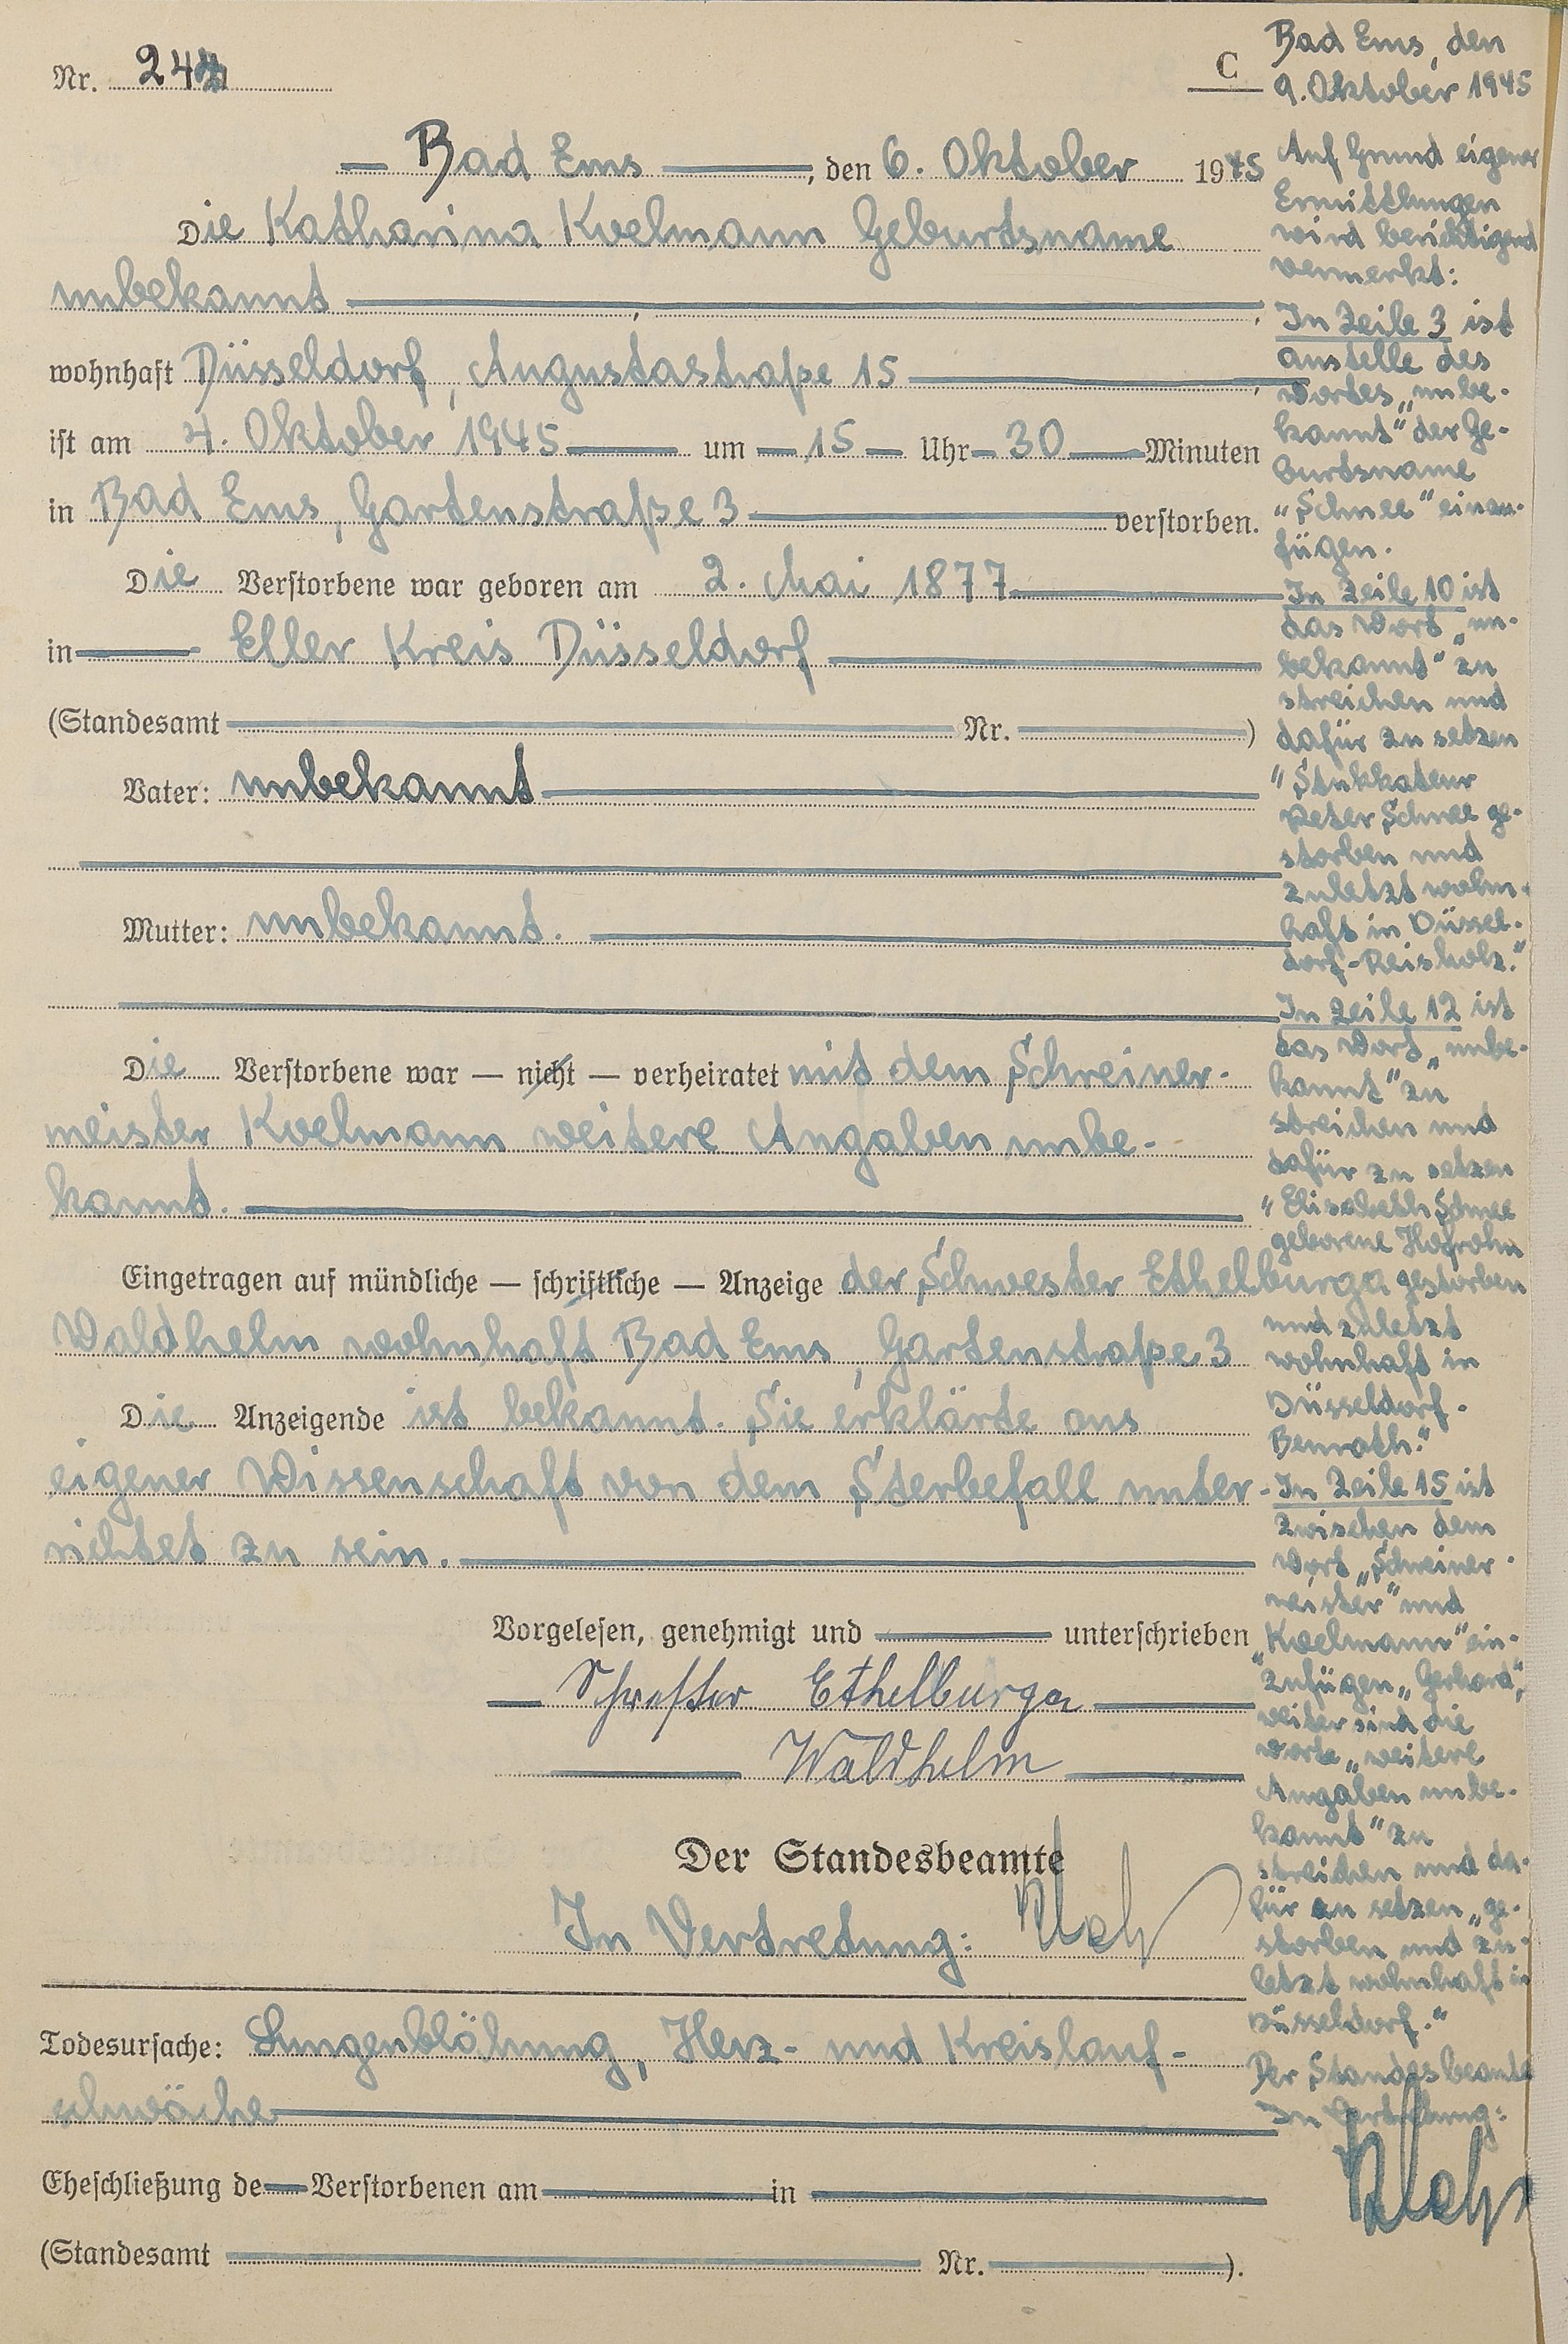 Nr. 244
C
Bad Ems, den 6. Oktober 1945
Die Katharina Kvelmann Geburtsname
unbekannt
wohnhaft Düsseldorf, Augustastraße 15
ist am 4. Oktober 1945 um 15 Uhr 30 Minuten
in Bad Ems, Gartenstraße 3 verstorben.
Die Verstorbene war geboren am 2. Mai 1877
in Eller Kreis Düsseldorf
(Standesamt Nr. )
Vater: unbekannt
Mutter: unbekannt.
Die Verstorbene war — nicht — verheiratet mit dem Schreiner-
meister Kvelmann weitere Angaben unbe-
kannt.
Eingetragen auf mündliche — schriftliche — Anzeige der Schwester Ethelburga
Waldhelm wohnhaft Bad Ems, Gartenstraße 3
Die Anzeigende ist bekannt. Sie erklärte aus
eigener Wissenschaft von dem Sterbefall unter-
richtet zu sein.
Vorgelesen, genehmigt und unterschrieben
Schwester Ethelburga
Waldhelm
Der Standesbeamte
In Vertretung:
Todesursache: Lungenblähung, Herz- und Kreislauf-
schwäche
Eheschließung de Verstorbenen am in
(Standesamt Nr. ).
Bad Ems, den
9. Oktober 1945
Auf Grund eigener
Ermittlungen
wird berichtigend
vermerkt:
In Zeile 3 ist
anstelle des
Wortes „unbe-
kannt" der Ge-
burtsname
"Schnee" einzu-
fügen.
In Zeile 10 ist
das Wort „un-
bekannt" zu
streichen und
dafür zu setzen
"Stukkateur
Peter Schnee ge-
storben und
zuletzt wohn-
haft in Düssel-
dorf-Reisholz."
In Zeile 12 ist
das Wort „unbe-
kannt" zu
streichen und
dafür zu setzen
"Elisabeth Schnee
geborene Hofrohn
gestorben
und zuletzt
wohnhaft in
Düsseldorf-
Benrath."
In Zeile 15 ist
zwischen dem
Wort „Schreiner-
meister" und
„Kvelmann" ein-
zufügen „Gerhard",
weiter sind die
Worte „weitere
Angaben unbe-
kannt" zu
streichen und da-
für zu setzen „ge-
storben und zu-
letzt wohnhaft in
Düsseldorf."
Der Standesbeamte
In Vertretung: